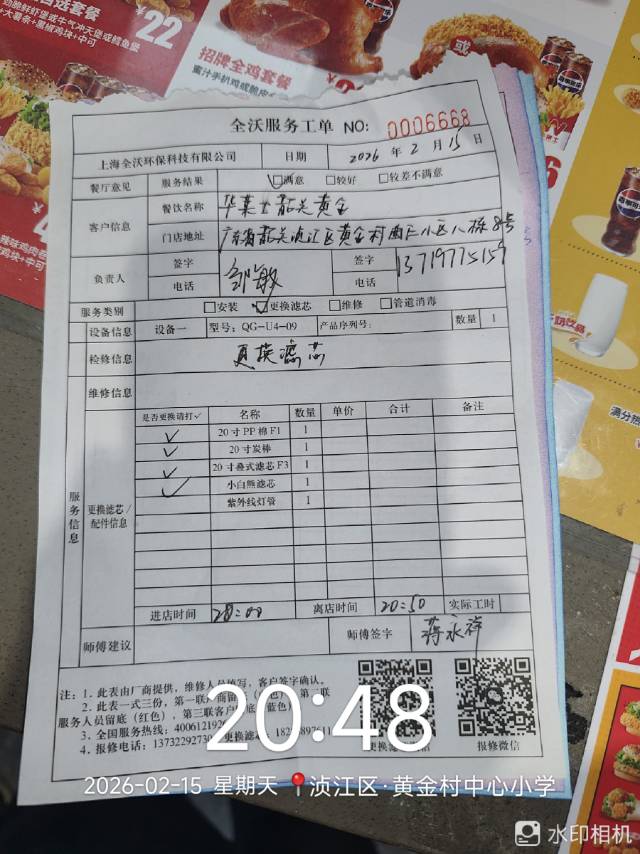 ¥22
招牌全鸡套餐
全沃服务工单 NO: 0006668
上海全沃环保科技有限公司 日期 2026 年 2 月 15 日
餐厅意见 服务结果 ☑满意 □较好 □较差不满意
客户信息 餐饮名称 华莱士韶关黄金
门店地址 广东省韶关浈江区黄金村西区小区八栋8号
负责人 签字 电话 邹敏 签字 电话 13719775159
服务类别 □安装 ☑更换滤芯 □维修 □管道消毒
设备信息 设备一 型号: QG-U4-09 产品序列号: 数量 1
检修信息 更换滤芯
维修信息
服务信息 更换滤芯/配件信息
是否更换请打✓ 名称 数量 单价 合计 备注
✓ 20寸PP棉F1 1
✓ 20寸炭棒 1
✓ 20寸叠式滤芯F3 1
✓ 小白熊滤芯 1
紫外线灯管 1
进店时间 28:00 离店时间 20:50 实际工时
师傅建议 师傅签字 蒋永祥
注: 1. 此表由厂商提供, 维修人员填写, 客户签字确认。
2. 此表一式三份, 第一联 第二联
服务人员留底(红色), 第三联客户 底(蓝色)
3. 全国服务热线: 40061219
4. 报修电话: 1373229273 更换滤
报修微信
20:48
2026-02-15 星期天 浈江区·黄金村中心小学
水印相机